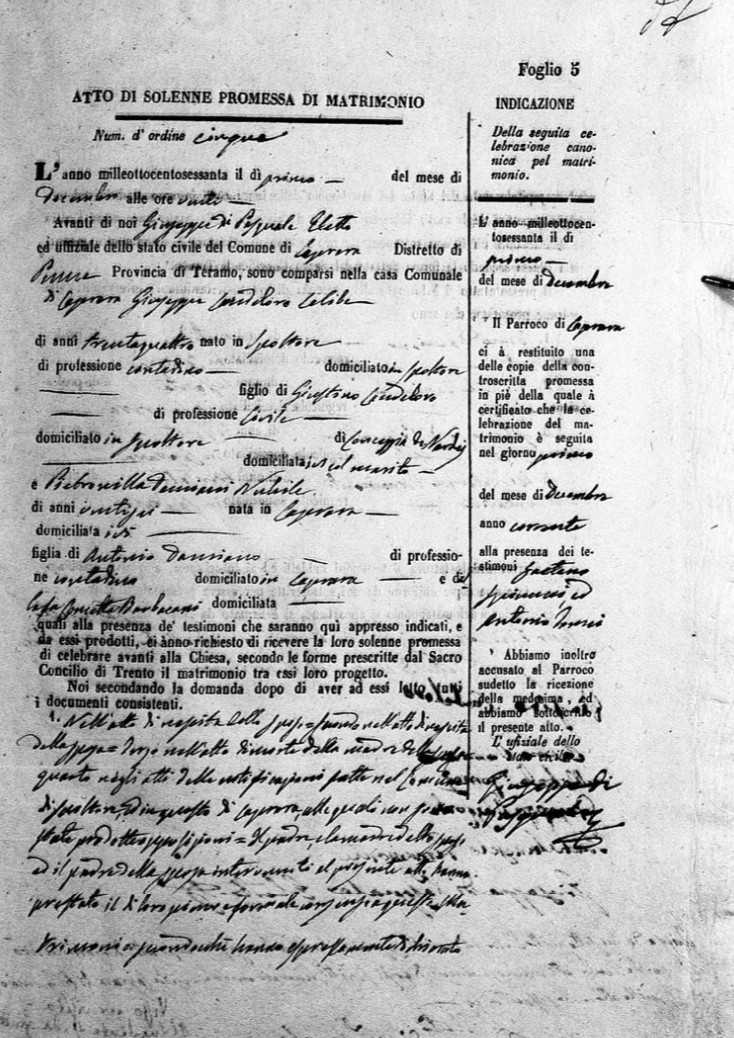 Foglio 5
ATTO DI SOLENNE PROMESSA DI MATRIMONIO
Num. d' ordine cinque
L' anno milleottocentosessanta il dì primo del mese di
Decembre alle ore venti
Avanti di noi Giuseppe di Pasquale Eletto
ed uffiziale dello stato civile del Comune di Caprara Distretto di
Penne Provincia di Teramo, sono comparsi nella casa Comunale
di Caprara Giuseppe Candeloro Celibe
di anni trentaquattro nato in Spoltore
di professione contadino domiciliato in Spoltore
figlio di Giustino Candeloro
di professione Civile
domiciliato in Spoltore di Concezia de
domiciliata ivi col marito
e Petronilla Damiani Nubile
di anni ventisei nata in Caprara
domiciliata ivi
figlia di Antonio Damiano di professio-
ne contadino domiciliato in Caprara e di
domiciliata
quali alla presenza de' testimoni che saranno quì appresso indicati, e
da essi prodotti, ci ànno richiesto di ricevere la loro solenne promessa
di celebrare avanti alla Chiesa, secondo le forme prescritte dal Sacro
Concilio di Trento il matrimonio tra essi loro progetto.
Noi secondando la domanda dopo di aver ad essi letto tutti
i documenti consistenti.
1. Nell'atto di nascita dello sposo = secondo nell'atto di nascita
della sposa = terzo nell'atto di morte della madre della sposa
quarto negli atti delle notificazioni fatte nel Comune
di Spoltore, ed in questo di Caprara, alle quali non sono
state prodotte opposizioni = Il padre, e la madre dello sposo
ed il padre della sposa intervenuti al presente atto hanno
prestato il di loro formale consenso a questo Ma
trimonio
INDICAZIONE
Della seguita ce-
lebrazione cano-
nica pel matri-
monio.
L' anno milleottocen-
tosessanta il di
primo
del mese di Decembre
Il Parroco di Caprara
ci à restituito una
delle copie della con-
troscritta promessa
in piè della quale à
certificato che la ce-
lebrazione del ma-
trimonio è seguita
nel giorno primo
del mese di Decembre
anno corrente
alla presenza dei te-
stimoni Gaetano
ed
Antonio
Abbiamo inoltro
accusato al Parroco
sudetto la ricezione
della medesima ed
abbiamo sottoscritto
il presente atto.
L' ufiziale dello
stato civile
Giuseppe di
Pasquale